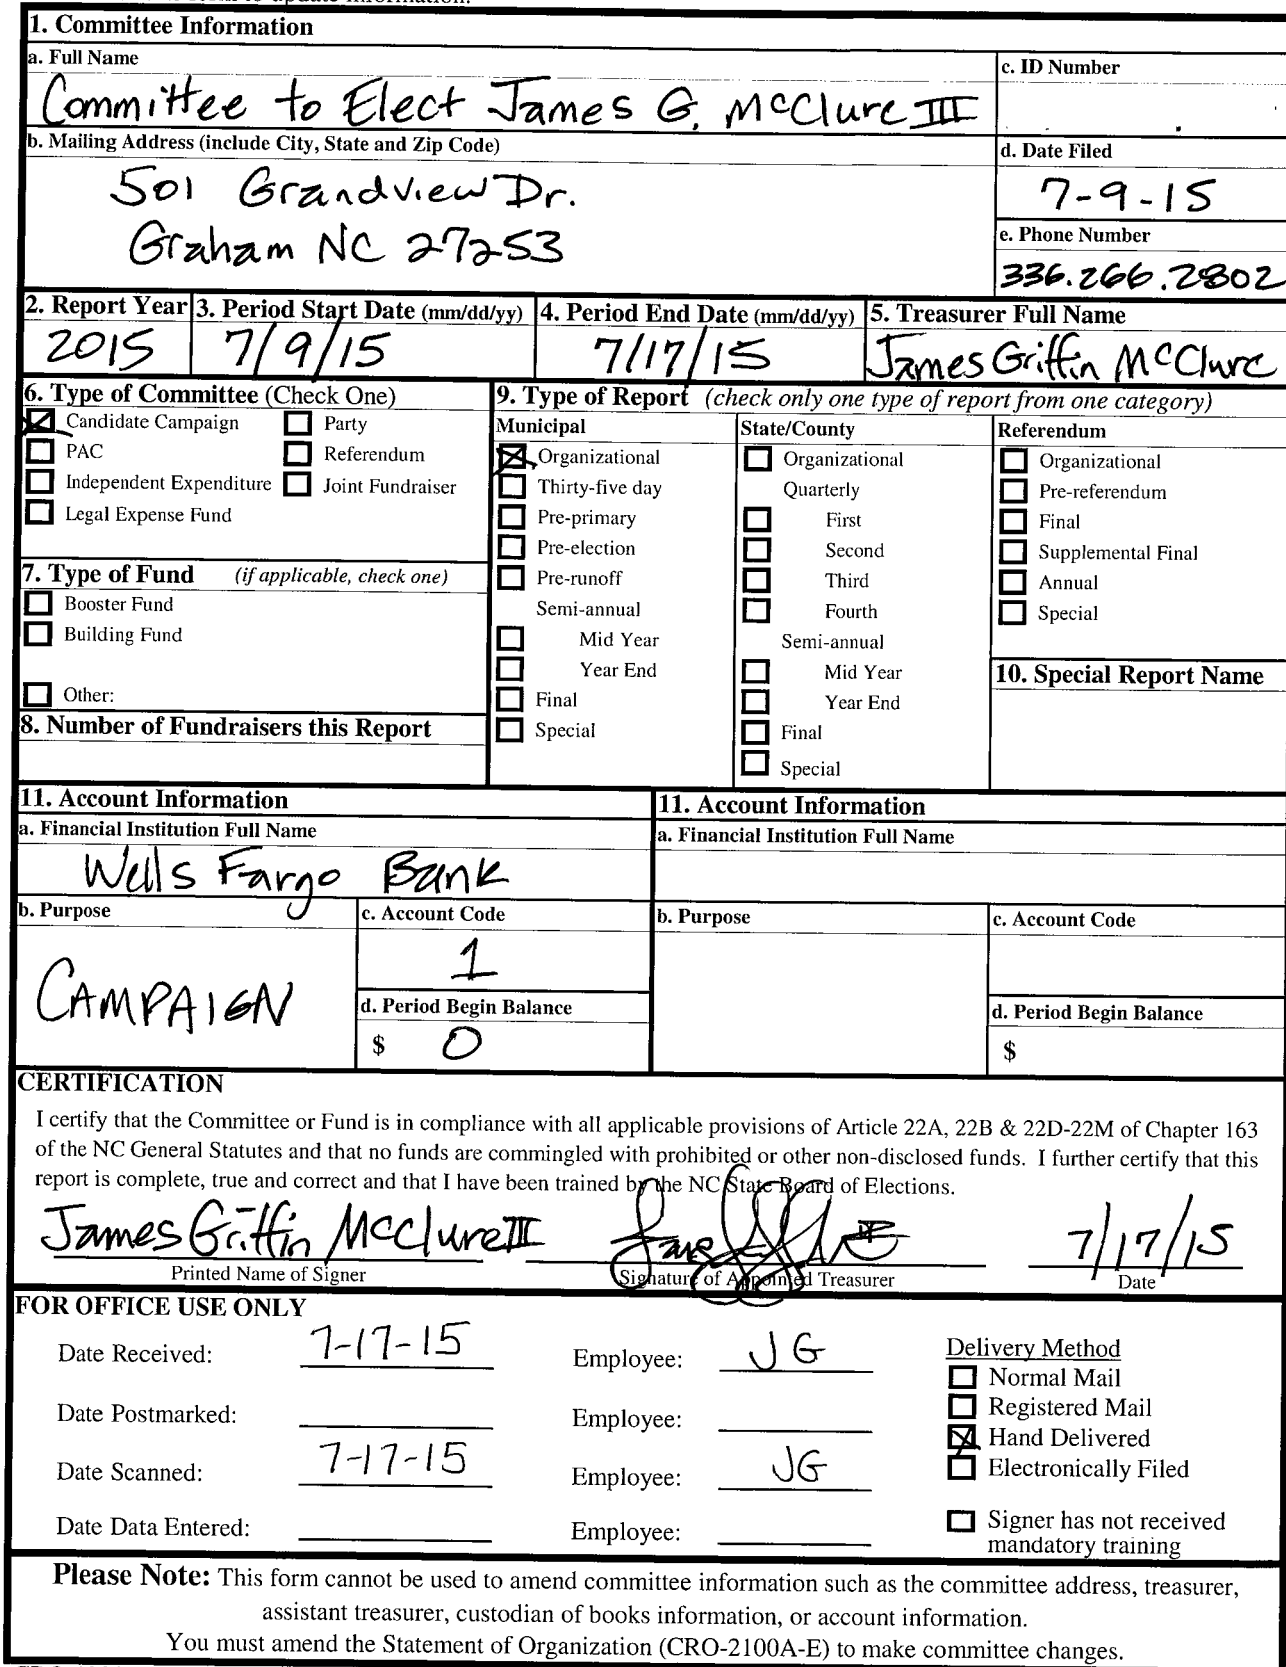 1. Committee Information
a. Full Name
c. ID Number
Committee to Elect James G. McClure III
b. Mailing Address (include City, State and Zip Code)
d. Date Filed
501 Grandview Dr.
7-9-15
Graham NC 27253
e. Phone Number
336.266.2802
2. Report Year
3. Period Start Date (mm/dd/yy)
4. Period End Date (mm/dd/yy)
5. Treasurer Full Name
2015
7/9/15
7/17/15
James Griffin McClure
6. Type of Committee (Check One)
Candidate Campaign
Party
PAC
Referendum
Independent Expenditure
Joint Fundraiser
Legal Expense Fund
7. Type of Fund (if applicable, check one)
Booster Fund
Building Fund
Other:
8. Number of Fundraisers this Report
9. Type of Report (check only one type of report from one category)
Municipal
Organizational
Thirty-five day
Pre-primary
Pre-election
Pre-runoff
Semi-annual
Mid Year
Year End
Final
Special
State/County
Organizational
Quarterly
First
Second
Third
Fourth
Semi-annual
Mid Year
Year End
Final
Special
Referendum
Organizational
Pre-referendum
Final
Supplemental Final
Annual
Special
10. Special Report Name
11. Account Information
a. Financial Institution Full Name
Wells Fargo Bank
b. Purpose
c. Account Code
CAMPAIGN
1
d. Period Begin Balance
$ 0
11. Account Information
a. Financial Institution Full Name
b. Purpose
c. Account Code
d. Period Begin Balance
$
CERTIFICATION
I certify that the Committee or Fund is in compliance with all applicable provisions of Article 22A, 22B & 22D-22M of Chapter 163
of the NC General Statutes and that no funds are commingled with prohibited or other non-disclosed funds. I further certify that this
report is complete, true and correct and that I have been trained by the NC State Board of Elections.
James Griffin McClure III
7/17/15
Printed Name of Signer
Signature of Appointed Treasurer
Date
FOR OFFICE USE ONLY
Date Received: 7-17-15 Employee: JG
Date Postmarked: Employee:
Date Scanned: 7-17-15 Employee: JG
Date Data Entered: Employee:
Delivery Method
Normal Mail
Registered Mail
Hand Delivered
Electronically Filed
Signer has not received
mandatory training
Please Note: This form cannot be used to amend committee information such as the committee address, treasurer,
assistant treasurer, custodian of books information, or account information.
You must amend the Statement of Organization (CRO-2100A-E) to make committee changes.